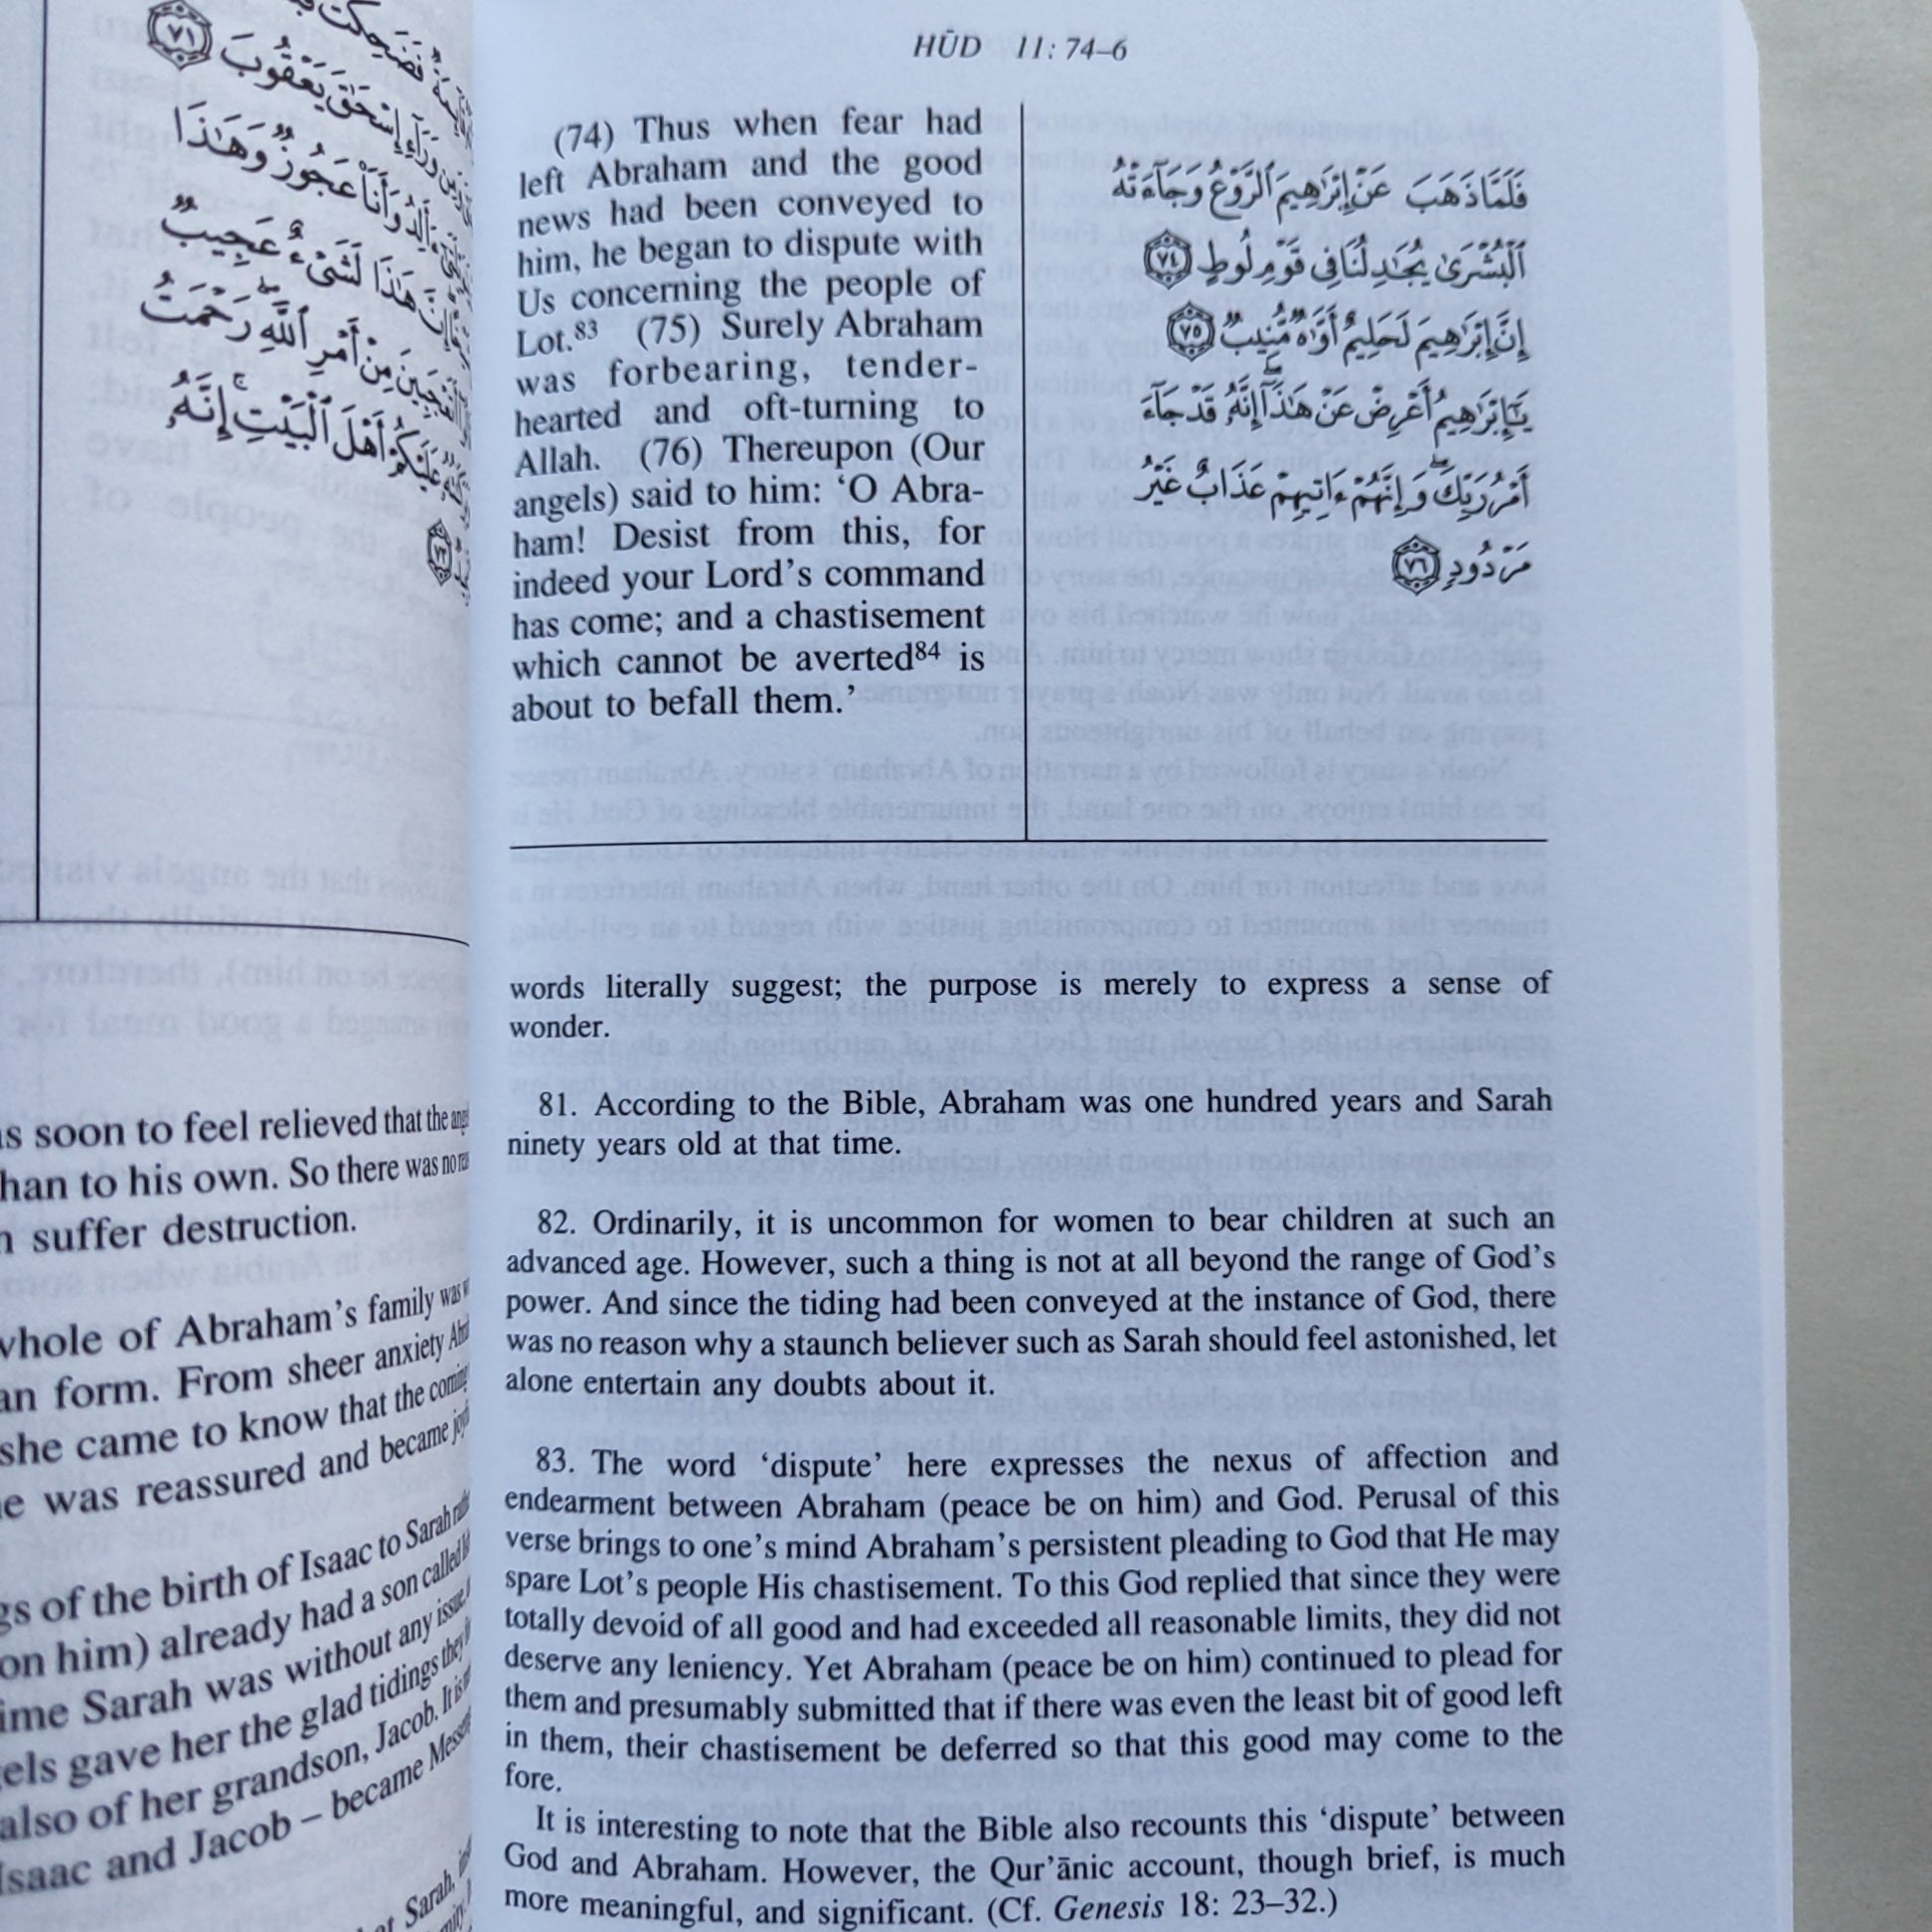 HÛD 11: 74–6
(74) Thus when fear had
left Abraham and the good
news had been conveyed to
him, he began to dispute with
Us concerning the people of
Lot.83 (75) Surely Abraham
was forbearing, tender-
hearted and oft-turning to
Allah. (76) Thereupon (Our
angels) said to him: ‘O Abra-
ham! Desist from this, for
indeed your Lord’s command
has come; and a chastisement
which cannot be averted84 is
about to befall them.’
فَلَمَّا ذَهَبَ عَنْ إِبْرَٰهِيمَ ٱلرَّوْعُ وَجَآءَتْهُ
ٱلْبُشْرَىٰ يُجَٰدِلُنَا فِى قَوْمِ لُوطٍ ٧٤
إِنَّ إِبْرَٰهِيمَ لَحَلِيمٌ أَوَّٰهٌ مُّنِيبٌ ٧٥
يَٰٓإِبْرَٰهِيمُ أَعْرِضْ عَنْ هَٰذَآ إِنَّهُۥ قَدْ جَآءَ
أَمْرُ رَبِّكَ وَإِنَّهُمْ ءَاتِيهِمْ عَذَابٌ غَيْرُ
مَرْدُودٍ ٧٦
words literally suggest; the purpose is merely to express a sense of
wonder.
81. According to the Bible, Abraham was one hundred years and Sarah
ninety years old at that time.
82. Ordinarily, it is uncommon for women to bear children at such an
advanced age. However, such a thing is not at all beyond the range of God’s
power. And since the tiding had been conveyed at the instance of God, there
was no reason why a staunch believer such as Sarah should feel astonished, let
alone entertain any doubts about it.
83. The word ‘dispute’ here expresses the nexus of affection and
endearment between Abraham (peace be on him) and God. Perusal of this
verse brings to one’s mind Abraham’s persistent pleading to God that He may
spare Lot’s people His chastisement. To this God replied that since they were
totally devoid of all good and had exceeded all reasonable limits, they did not
deserve any leniency. Yet Abraham (peace be on him) continued to plead for
them and presumably submitted that if there was even the least bit of good left
in them, their chastisement be deferred so that this good may come to the
fore.
It is interesting to note that the Bible also recounts this ‘dispute’ between
God and Abraham. However, the Qur’ānic account, though brief, is much
more meaningful, and significant. (Cf. Genesis 18: 23–32.)
يَعْقُوبَ ٧١
عَجُوزٌ وَهَٰذَا
هَٰذَا لَشَىْءٌ عَجِيبٌ
مِنْ أَمْرِ ٱللَّهِ رَحْمَتُ
عَلَيْكُمْ أَهْلَ ٱلْبَيْتِ إِنَّهُۥ
soon to feel relieved that the
to his own. So there was no
suffer destruction.
whole of Abraham’s family was
form. From sheer anxiety
she came to know that the coming
was reassured and became
of the birth of Isaac to Sarah
on him) already had a son called
Sarah was without any issue.
gave her the glad tidings they
also of her grandson, Jacob. It is
Isaac and Jacob – became
Sarah,